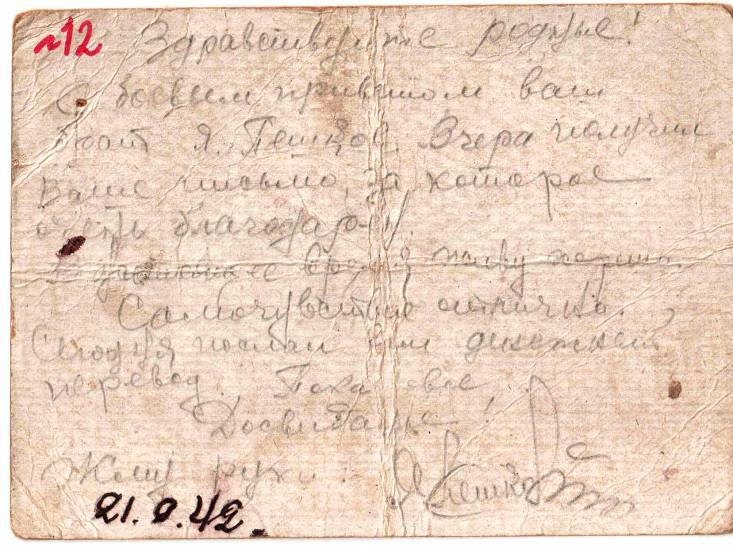 №12
Здравствуйте родные!
С боевым приветом ваш
брат Я. Пешков. Вчера получил
ваше письмо, за которое
очень благодарен.
В настоящее время живу хорошо.
Самочувствие отлично.
Сегодня послал вам денежный
перевод. Пока все.
Досвиданье!
Жму руки. Я Пешков
21.9.42.